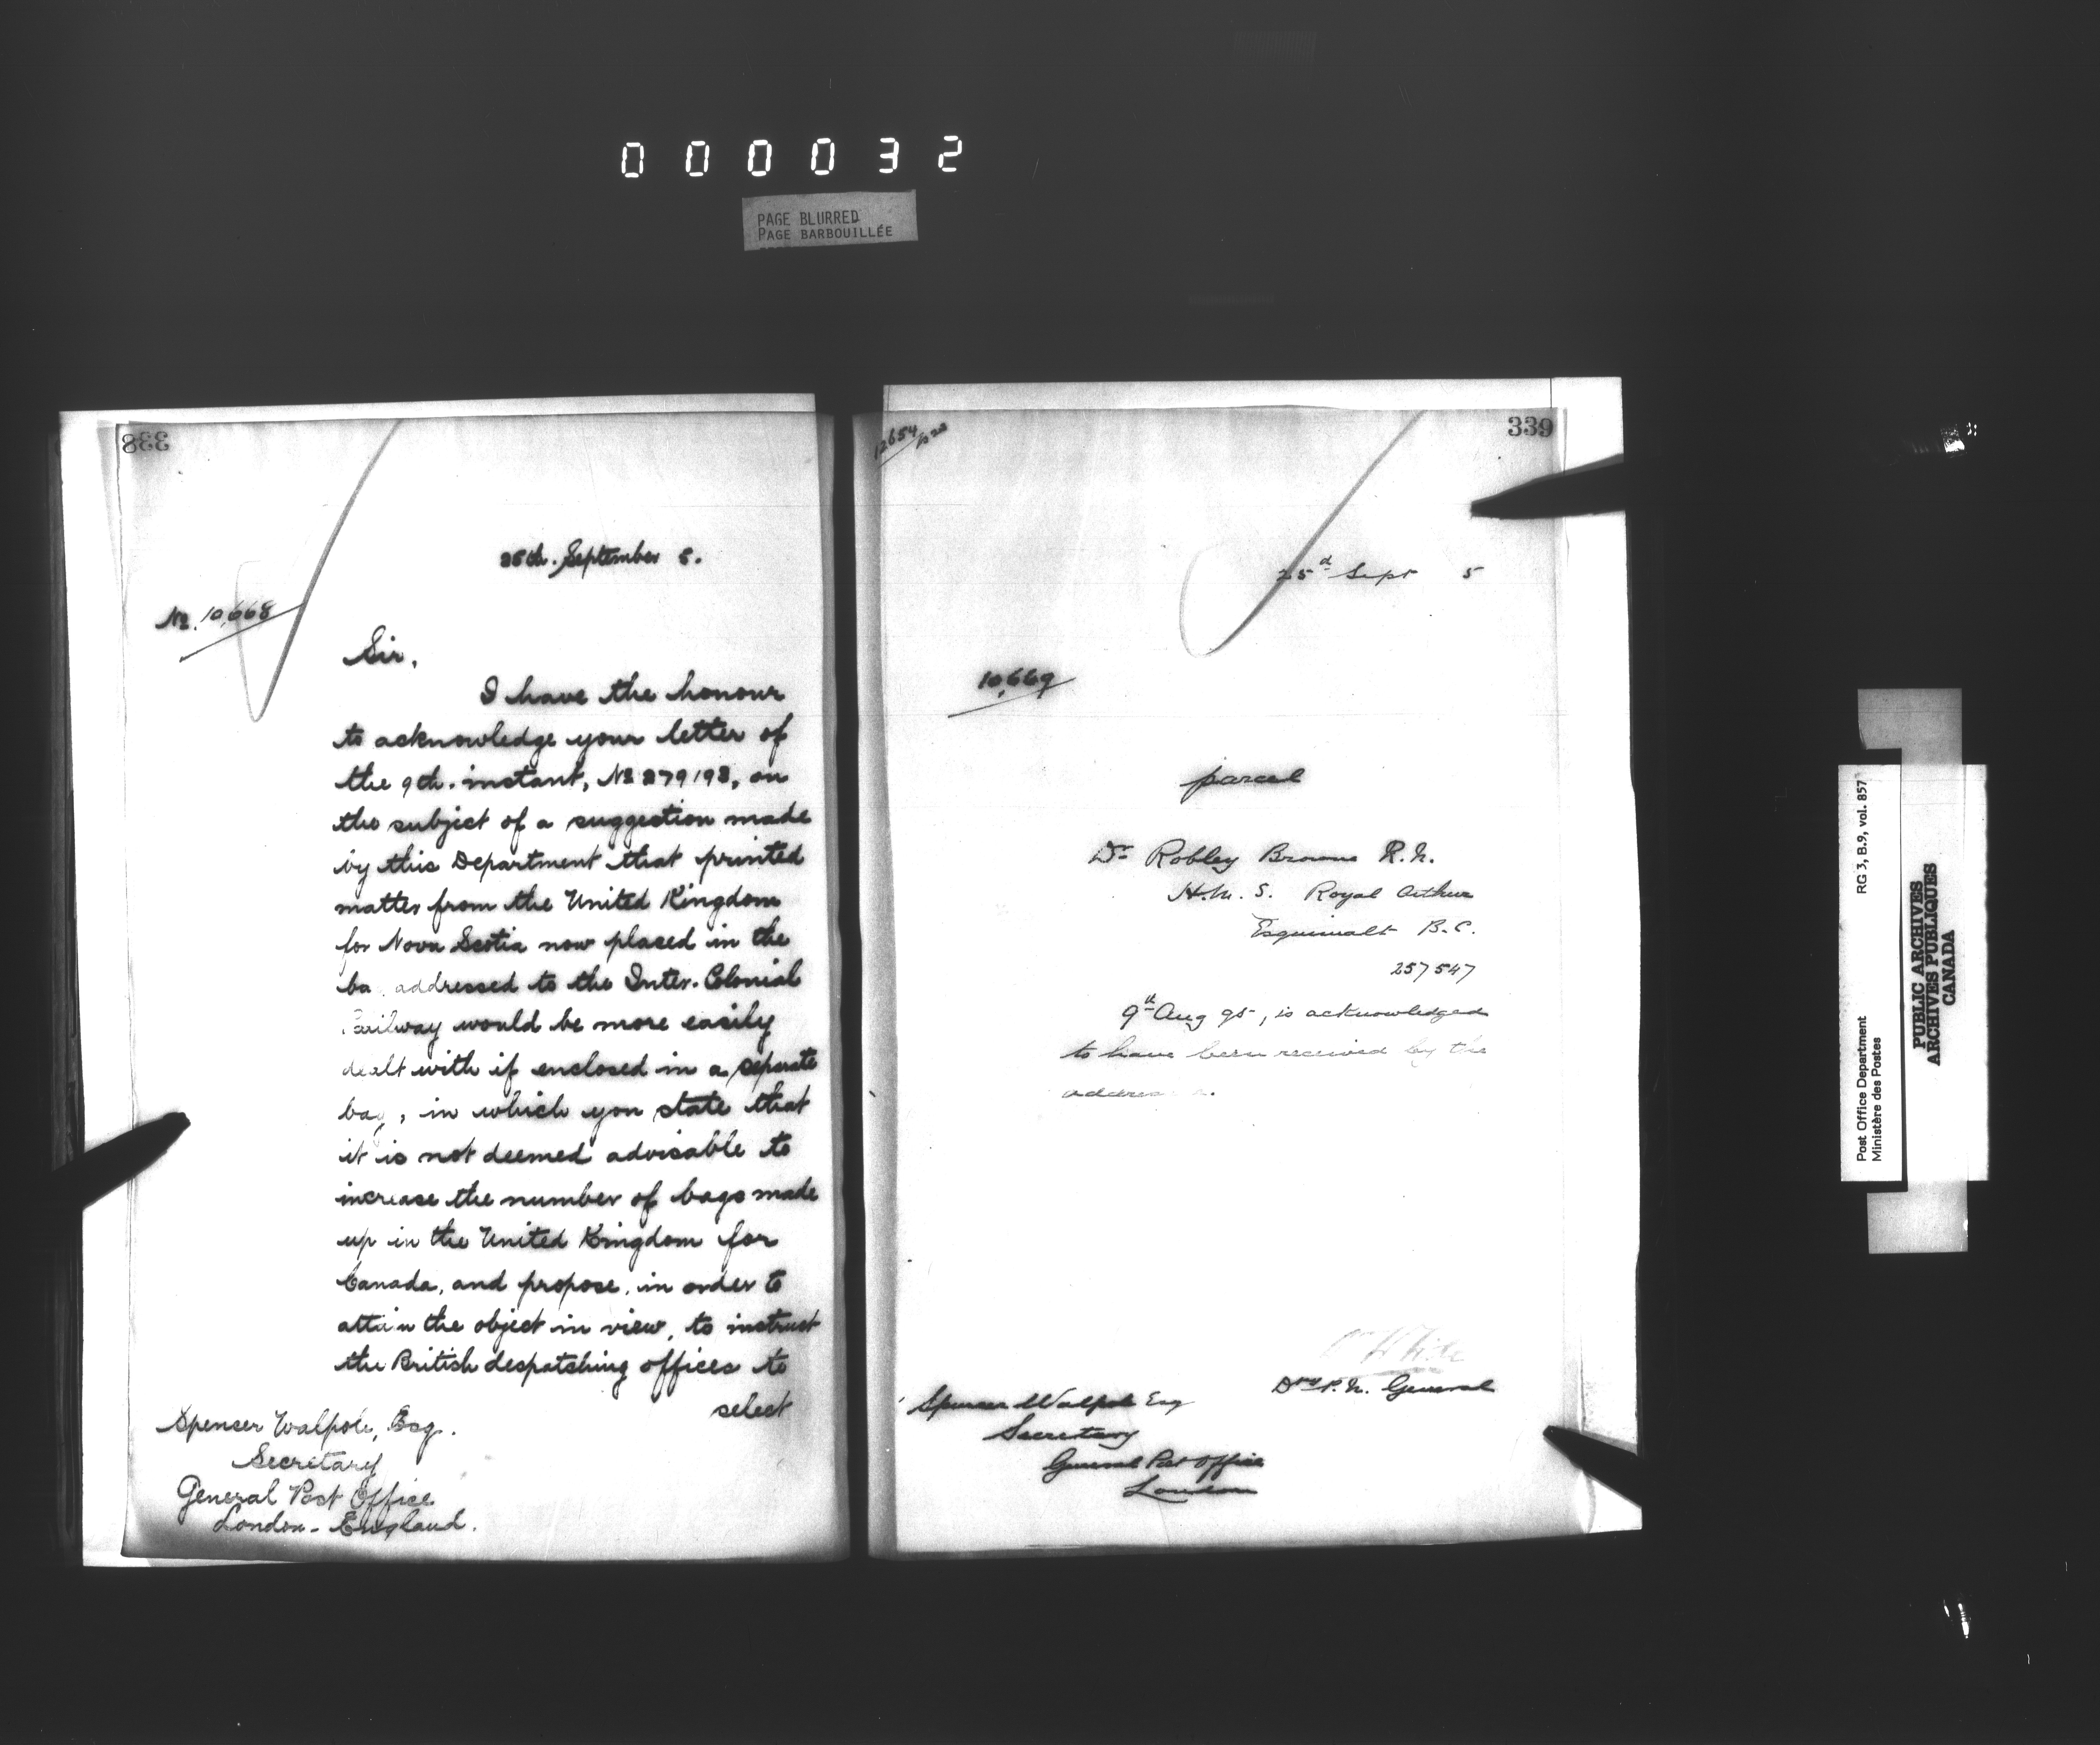 000032
PAGE BLURRED
PAGE BARBOUILLÉE
338
25th. September 5.
No. 10,668
Sir,
I have the honour
to acknowledge your letter of
the 9th. instant, No 279193, on
the subject of a suggestion made
by this Department that printed
matter from the United Kingdom
for Nova Scotia now placed in the
ba addressed to the Inter-Colonial
Railway would be more easily
dealt with if enclosed in a separate
bag, in which you state that
it is not deemed advisable to
increase the number of bags made
up in the United Kingdom for
Canada, and propose, in order to
attain the object in view, to instruct
the British despatching offices to
select
Spenser Walpole, Esq.
Secretary
General Post Office
London - England.
339
12654
25d Sept 5
10,669
parcel
Dr Robley Browne R.N.
H.M.S. Royal Arthur
Esquimalt B.C.
257547
9th Aug 95, is acknowledged
to have been received by the
address
White
P.M. General
Spenser Walpole Esq
Secretary
General Post Office
London
RG 3, B.9, vol. 857
Post Office Department
Ministère des Postes
PUBLIC ARCHIVES
ARCHIVES PUBLIQUES
CANADA